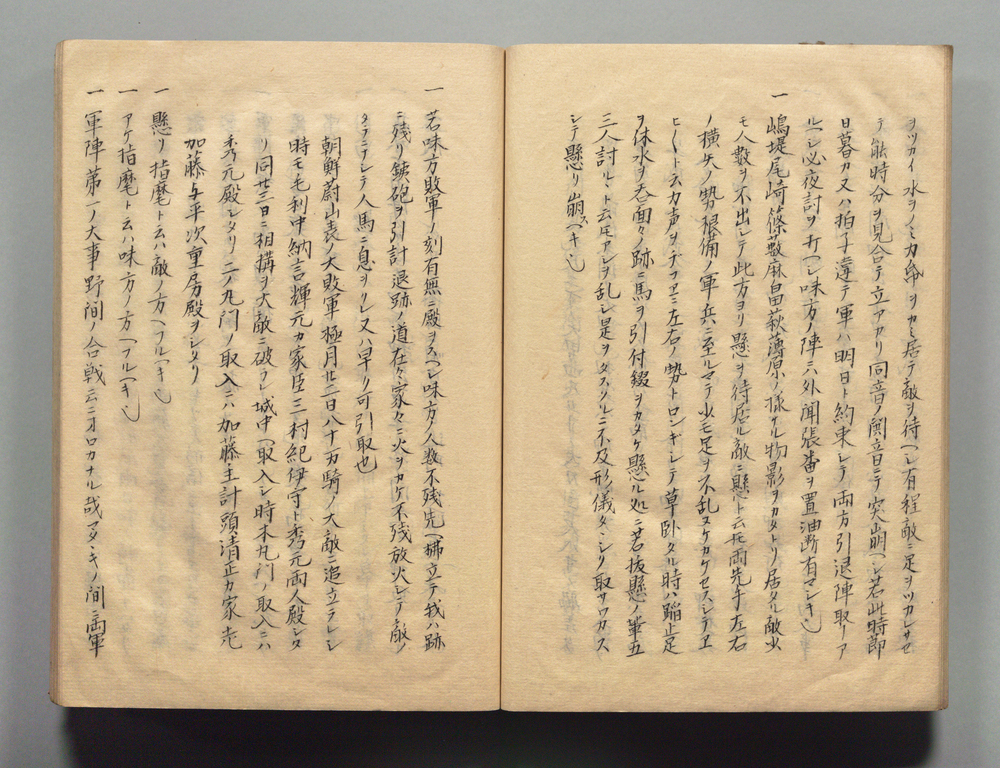 ヲツカイ水ヲノミカ命ヲカミ居テ敵ヲ待ヘシ有程敵ニ足ヲツカレサセ
テ能時分ヲ見合テ立アカリ同音ノ鬨立日ニテ突崩ヘシ若此時節
日暮カ又ハ拍子違テ軍ハ明日ト約束シテ両方引退陣取リア
ルヘシ必夜討ヲ打ヘシ味方ノ陣ニハ外聞張番ヲ置油断有マシキ也
一嶋堤尾崎篠藪麻畠萩薄原ノ様ナル物影ヲカタトリ居タル敵少
モ人数ヲ不出シテ此方ヨリ懸ヲ待居ル敵ニ懸ト云トモ両先手左右
ノ横矢ノ勢後備ノ軍兵ニ至ルマテ少モ足ヲ不乱ヌケカケセスシテヱ
ヒ〳〵ト云カ声ヲ左右ノ勢トロシキシテ草臥タル時ハ蹈止足
ヲ休水ヲ呑面々ノ跡ニ馬ヲ引付綴ヲカタケ懸ル処ニ若抜懸ノ輩五
三人討ルヽト云トモアシヲ乱シ是ヲタスクルニ不及形儀タヽシク取サワカス
シテ懸リ崩スヘキ也
一若味方敗軍ノ刻有無ニ殿ヲスヘシ味方ノ人数不残先ヘ押立テ我ハ跡
ニ残リ鉄砲ヲ引計退跡ノ道在々家々ニ火ヲカケ不残放火シテ敵ノ
タテラレテ人馬ニ息ヲツレ又ハ早ク可引取也
朝鮮蔚山表ノ大敗軍極月廿二日八十万騎ノ大敵ニ追立ラレシ
時モ毛利中納言輝元カ家臣三村紀伊守ト秀元両人殿シタ
リ同廿三日ニ相構ヲ大敵ニ破ラレ城中ヘ取入シ時本丸門ノ取入ニハ
秀元殿シタリ二ノ丸門ノ取入ニハ加藤主計頭清正カ家先
加藤与平次重房殿ヲシタリ
一懸リ指麾ト云ハ敵ノ方ヘフルヘキ也
一アケ指麾ト云ハ味方ノ方ヘフルヘキ也
一軍陣第一ノ大事野間ノ合戦云ニオロカナル哉マタヽキノ間ニ両軍